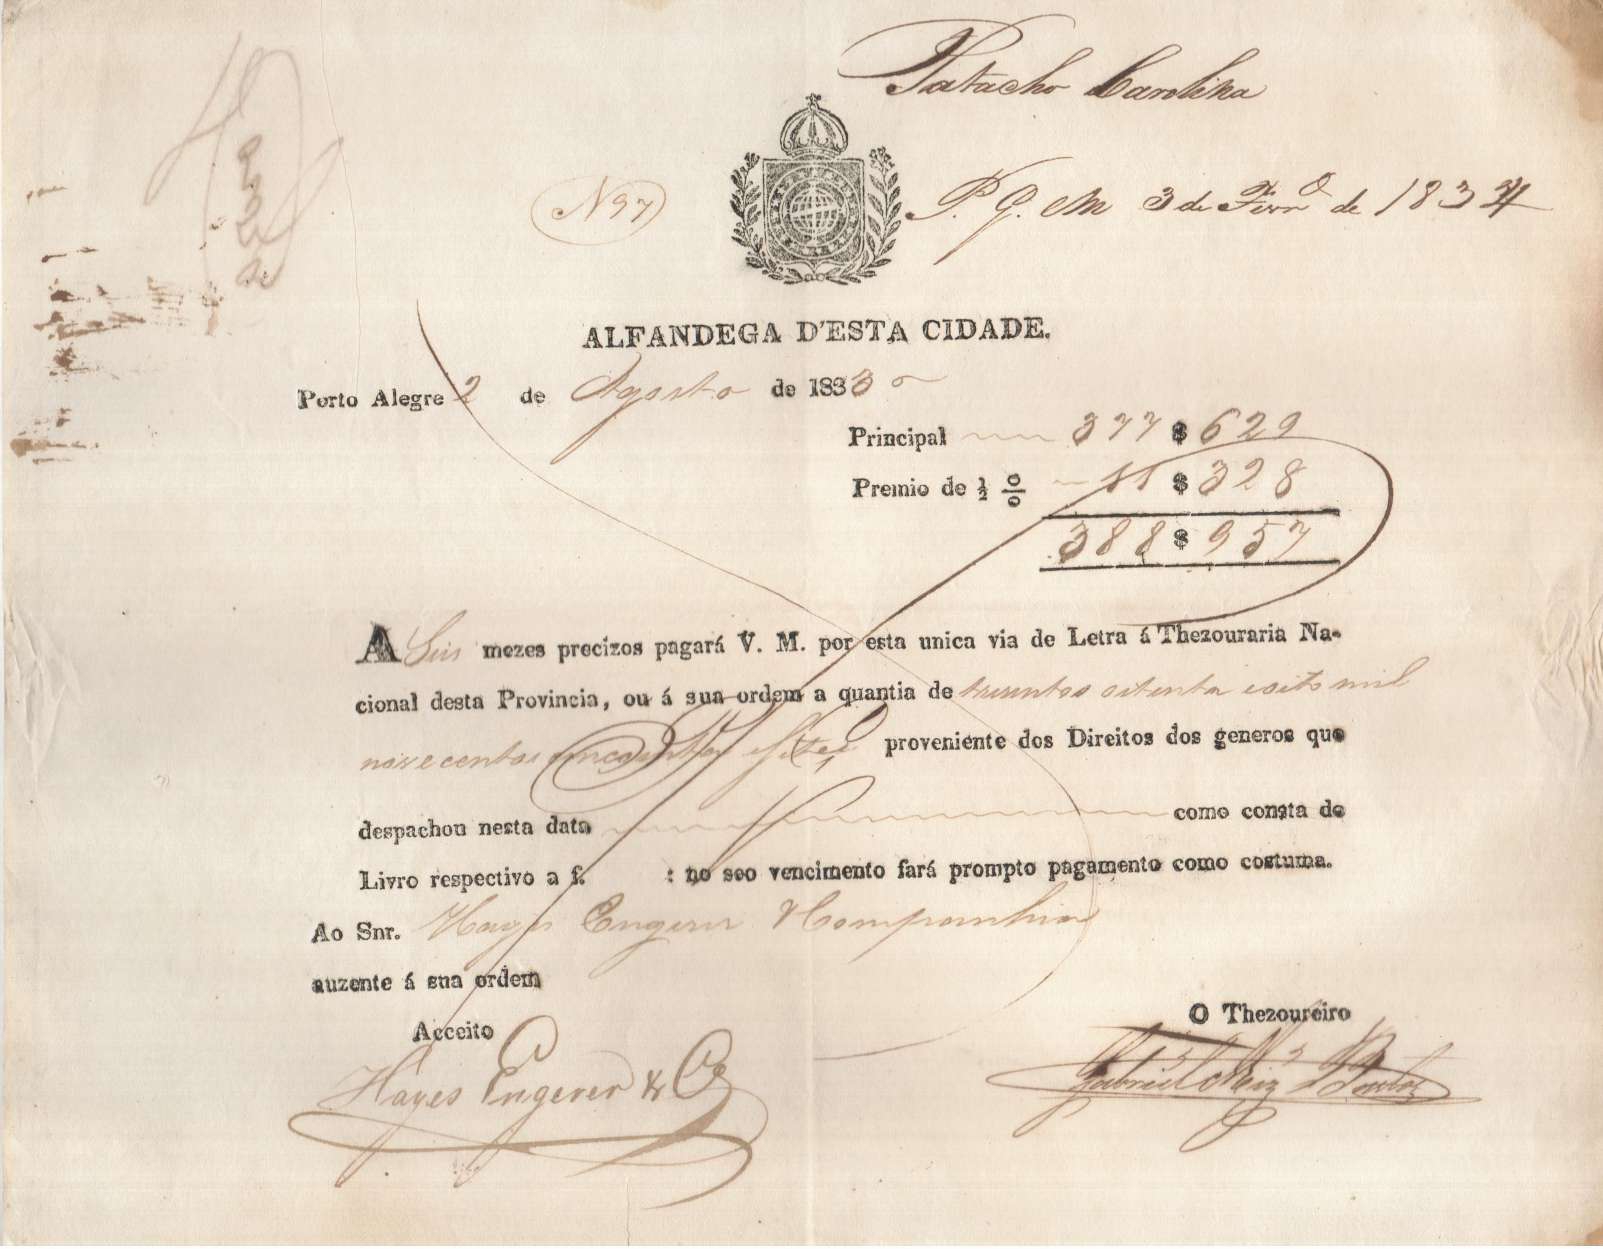 Patacho Carolina
N 97
P. G. em 3 de Fevro de 1834
ALFANDEGA D'ESTA CIDADE.
Porto Alegre 2 de Agosto de 1833
Principal 377 $ 629
Premio de ½ % 11 $ 328
388 $ 957
A Seis mezes precizos pagará V. M. por esta unica via de Letra á Thezouraria Na-
cional desta Provincia, ou á sua ordem a quantia de trezentos oitenta eoito mil
novecentos cincoenta esete proveniente dos Direitos dos generos que
despachou nesta data como consta do
Livro respectivo a f. : no seo vencimento fará prompto pagamento como costuma.
Ao Snr. Hayes Engerer & Companhia
auzente á sua ordem
Acceito
O Thezoureiro
Hayes Engerer & Co
Gabriel